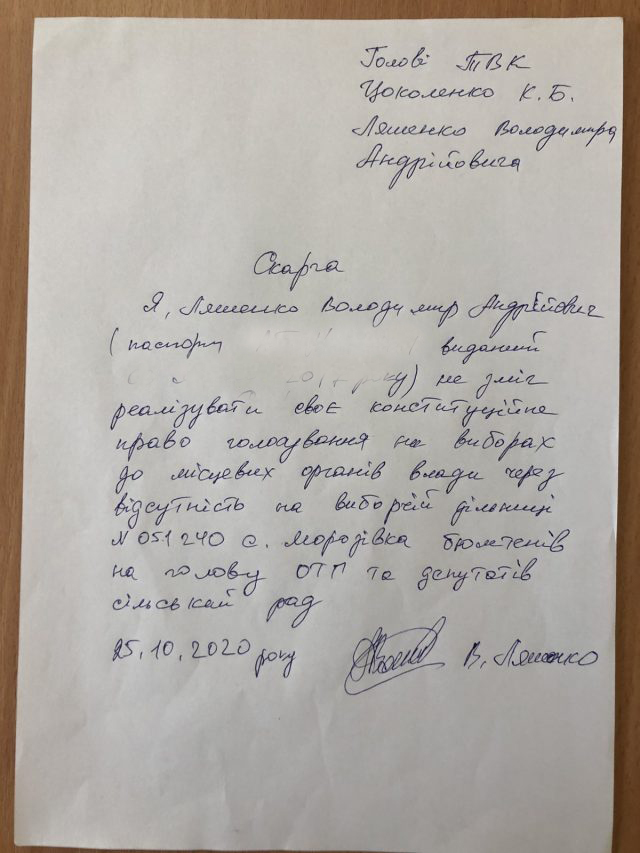 Голові ТВК
Цоколенко К. Б.
Ляшенко Володимира
Андрійовича
Скарга
Я, Ляшенко Володимир Андрійович
(паспорт виданий
року) не зміг
реалізувати своє конституційне
право голосування на виборах
до місцевих органів влади через
відсутність на виборчій дільниці
N 051240 с. Мородівка бюлетенів
на голову ОТГ та депутатів
сільської рад
25.10.2020 року В. Ляшенко